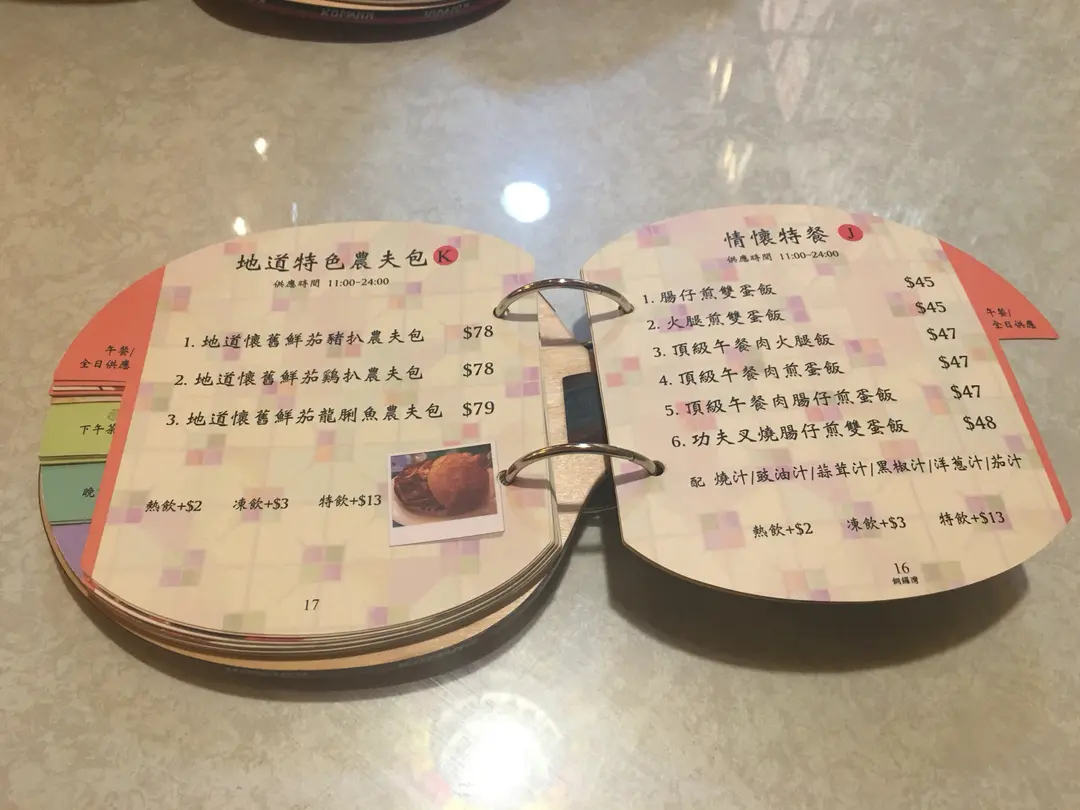 地道特色農夫包 K
供應時間 11:00~24:00
1. 地道懷舊鮮茄豬扒農夫包 $78
2. 地道懷舊鮮茄鷄扒農夫包 $78
3. 地道懷舊鮮茄龍脷魚農夫包 $79
熱飲+$2 凍飲+$3 特飲+$13
17
午餐/
全日供應
下午茶
晚
情懷特餐 J
供應時間 11:00~24:00
1. 腸仔煎雙蛋飯 $45
2. 火腿煎雙蛋飯 $45
3. 頂級午餐肉火腿飯 $47
4. 頂級午餐肉煎蛋飯 $47
5. 頂級午餐肉腸仔煎蛋飯 $47
6. 功夫叉燒腸仔煎雙蛋飯 $48
配 燒汁/豉油汁/蒜茸汁/黑椒汁/洋葱汁/茄汁
熱飲+$2 凍飲+$3 特飲+$13
16
銅鑼灣
午餐/
全日供應